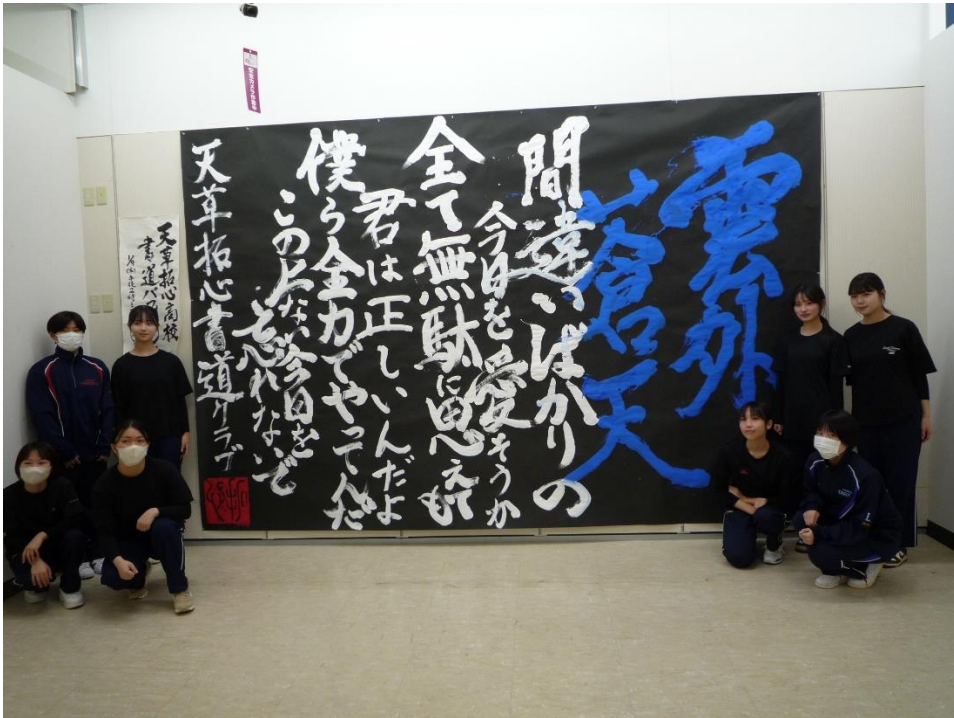 雲外
蒼天
間違いばかりの
今日を愛そうか
全て無駄に思えても
君は正しいんだよ
僕ら全力でやってんだ
この上ない今日を
忘れないで
天草拓心書道クラブ
天草拓心高校
書道パフ